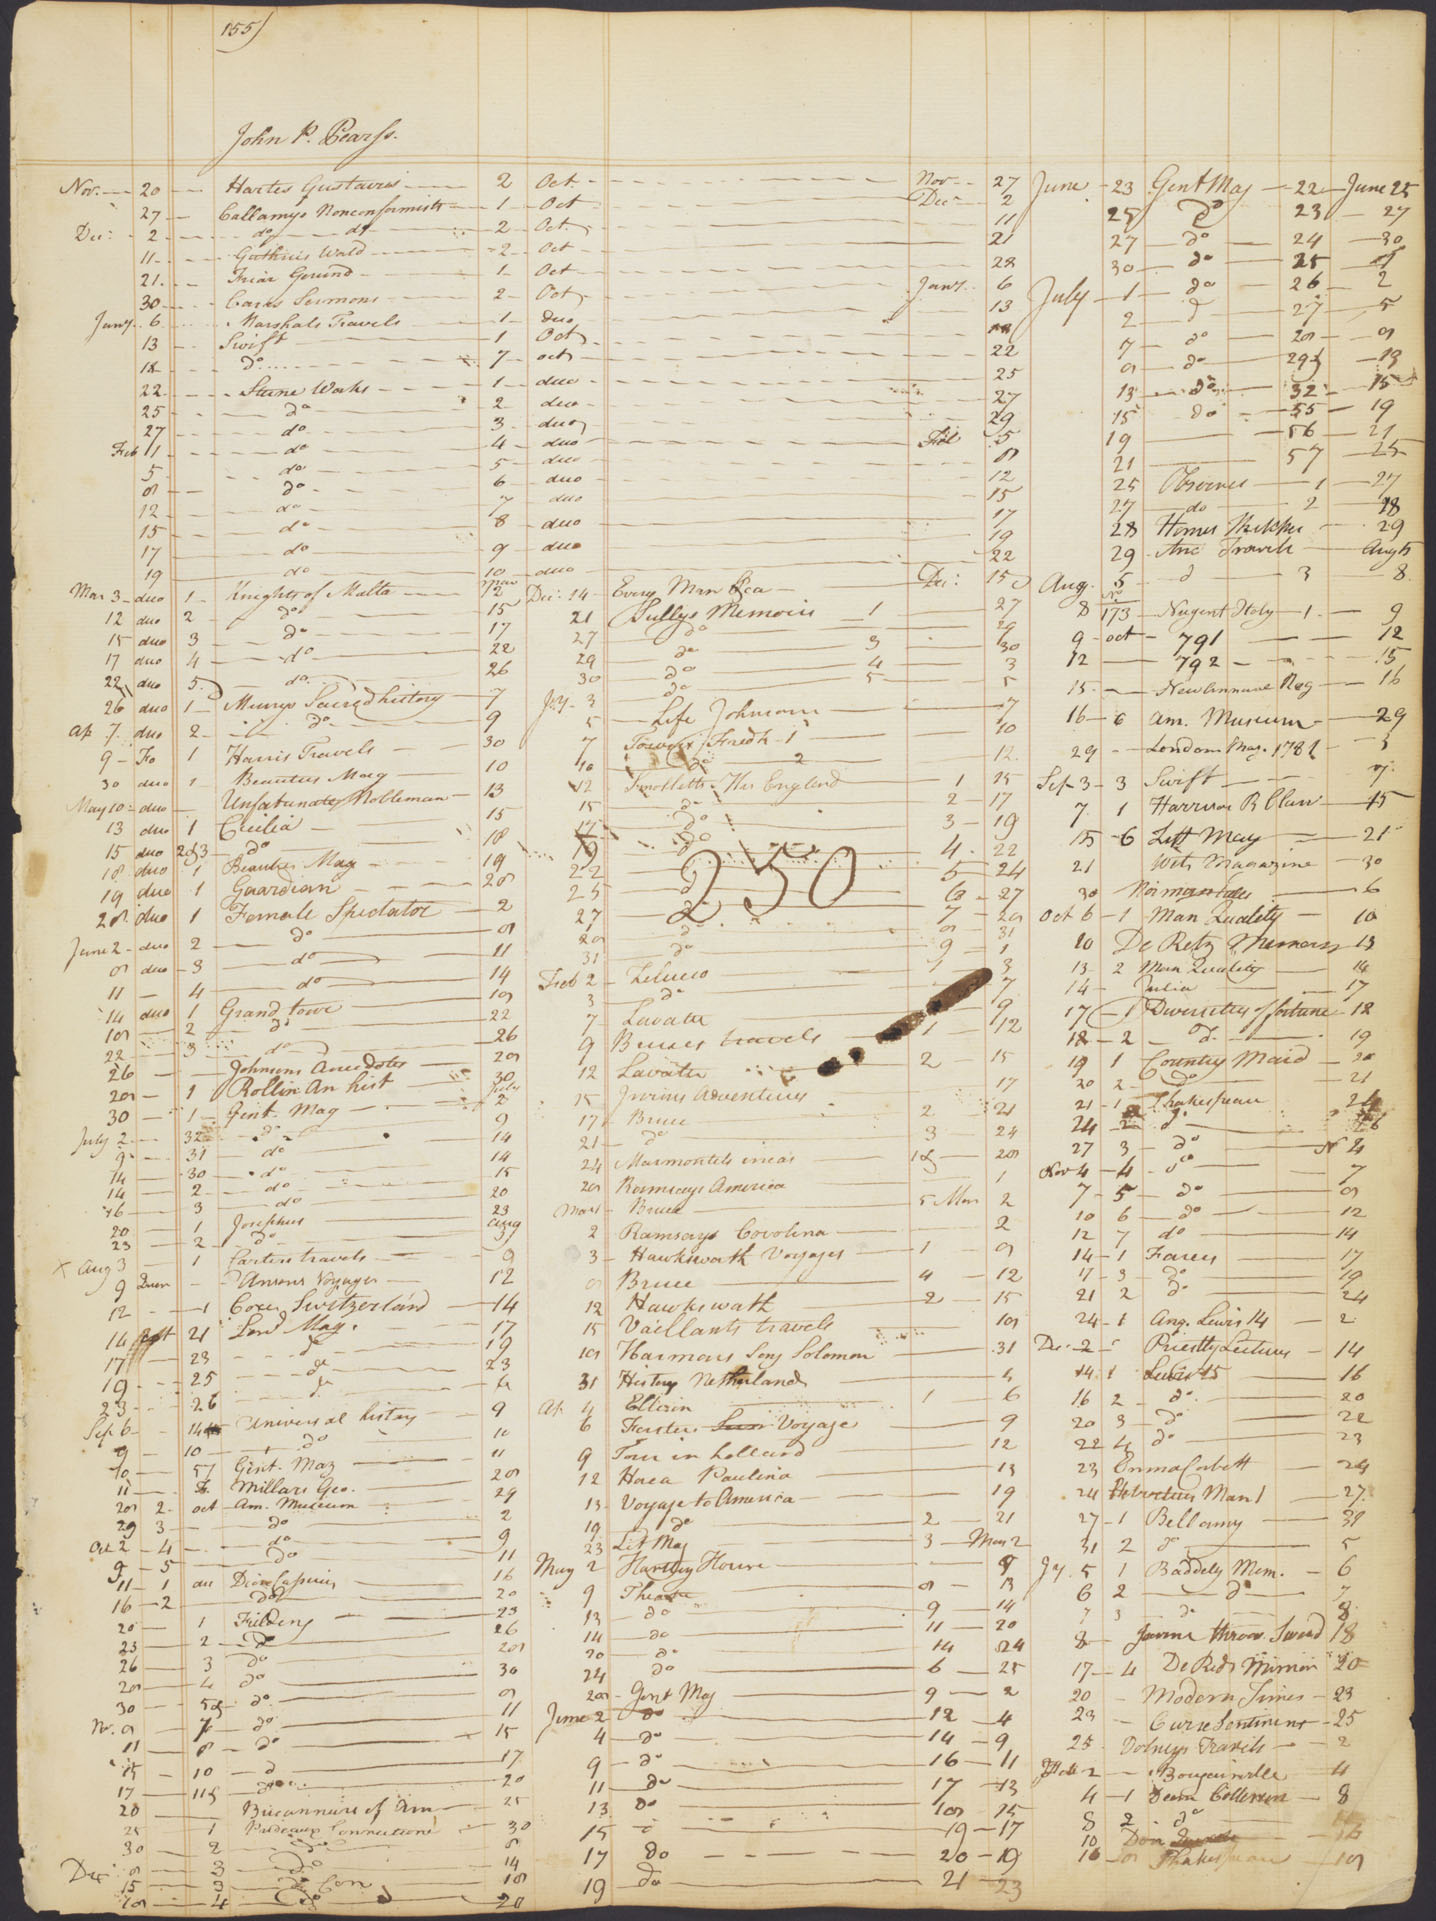 155)
John P. Pearse.
Nov. 20 Hartes Gustavus 2 Oct. Nov 27
27 Callamys Nonconformists 1 Oct Dec 2
Dec: 2 do do 2 Oct. 11
11 Guthries World 2 Oct 21
21 Friar Gerund 1 Oct 28
30 Carrs Sermons 2 Oct Jany 6
Jany 6 Marshals Travels 1 duo 13
13 Swift 1 Oct 18
18 do 7 oct 22
22 Sterne Works 1 duo 25
25 do 2 duo 27
27 do 3 duo 29
Feb 1 do 4 duo Feb 5
5 do 5 duo 8
8 do 6 duo 12
12 do 7 duo 15
15 do 8 duo 17
17 do 9 duo 19
19 do 10 duo 22
Mar 3 duo 1 Knights of Malta Mar 12
12 duo 2 do 15
15 duo 3 do 17
17 duo 4 do 22
22 duo 5 do 26
26 duo 1 Murrys Sacred history 7
Ap 7 duo 2 do 9
9 Fo 1 Harris Travels 30
30 duo 1 Beauties Mag 10
May 10 duo Unfortunate Nobleman 13
13 duo 1 Cecilia 15
15 duo 2 & 3 do 18
18 duo 1 Beauties Mag 19
19 duo 1 Guardian 28
28 duo 1 Female Spectator 2
June 2 duo 2 do 8
8 duo 3 do 11
11 4 do 14
14 duo 1 Grand tour 18
18 2 do 22
22 3 do 26
26 Johnsons Anecdotes 28
28 1 Rollin An hist 30
30 1 Gent. Mag July 2
July 2 32 do 9
9 31 do 14
14 30 do 14
14 2 do 15
16 3 do 20
20 1 Josephus 23
23 2 do Aug 3
x Aug 3 1 Carters travels 9
9 Ansons Voyages 12
12 1 Coxes Switzerland 14
14 21 Lond Mag. 17
17 23 do 19
19 25 do 23
23 26 do 6
Sep 6 Universal history 9
9 10 do 10
10 57 Gent. Mag 11
11 Millars Geo. 28
28 2 oct Am. Museum 29
29 3 do 2
Oct 2 4 do 9
9 5 do 11
11 1 Dion Cassius 16
16 2 do 20
20 1 Fielding 23
23 2 do 26
26 3 do 28
28 4 do 30
30 5 & do 8
Nov. 8 7 do 11
11 8 do 15
15 10 do 17
17 11 & do 20
20 Buccanniers of Am 25
25 1 Prideaux Connections 30
30 2 do 8
Dec 8 3 do 14
15 3 do Con 18
18 4 do 20
Dec: 14 Every Man Dec: 15
21 Sullys Memoirs 1 27
27 do 29
29 do 3 30
30 do 4 3
Jay 3 do 5 5
5 Life Johnson 7
7 Towers Fredk 1 10
10 do 2 12
12 Smolletts His England 1 15
15 do 2 17
17 do 3 19
19 do 4 22
22 do 5 24
25 do 6 27
250
27 do 7 28
28 do 8 31
31 do 9 1
Feb 2 Zeluco 1 3
3 do 7
7 Lavater 9
9 Bruces travels 1 12
12 Lavater 2 15
15 Irvins Adventures 17
17 Bruce 2 21
21 do 3 24
24 Marmontels incas 1 & 28
28 Ramsays America 1
Mar 1 Bruce 5 Mar 2
2 Ramsays Corolina 2
3 Hawksworth Voyages 1 8
8 Bruce 4 12
12 Hawkswath 2 15
15 Vaillants travels 18
18 Harmers Song Solomon 31
31 History Netherlands 4
Ap 4 Ellicin 1 6
6 Forster Voyage 9
9 Tour in holland 12
12 Horea Paulina 13
13 Voyage to America 19
19 do 2 21
23 Lit Mag 3 May 2
May 2 Hartley House 9
9 Theatre 8 13
13 do 9 14
14 do 11 20
20 do 14 24
24 do 6 25
28 Gent Mag 9 2
June 2 do 12 4
4 do 14 9
9 do 16 11
11 do 17 13
13 do 18 15
15 do 19 17
17 do 20 19
19 do 21 23
June 23 Gent Mag 22 June 25
25 do 23 27
27 do 24 30
30 do 25 1
July 1 do 26 2
2 do 27 5
7 do 28 8
8 do 29 & 13
13 do 32 15
15 do 55 19
19 56 21
21 57 25
25 Observer 1 27
27 do 2 28
28 Homes Sketches 29
29 Anc Travels Aug 5
Aug. 5 do 3 8
8 No 173 Nugent Italy 1 9
9 oct 791 12
12 792 15
15 New Annual Reg 16
16 6 Am. Museum 29
29 London Mag. 1782 3
Sep 3 3 Swift 7
7 1 Harrison 15
15 6 Litt Mag 21
21 Wits Magazine 30
30 6
Oct 6 1 Man Quality 10
10 De Retz Memoirs 13
13 2 Man Quality 14
14 Julia 17
17 1 Diversity of fortune 18
18 2 do 19
19 1 Country Maid 20
20 2 do 21
21 1 Shakespear 24
24 2 do 26
27 3 do N 4
Nov 4 4 do 7
7 5 do 8
10 6 do 12
12 7 do 14
14 1 Farces 17
17 3 do 19
21 2 do 24
24 1 Ang. Lewis 14 2
Dec 2 Priestly Lectures 14
14 1 Lewis 15 16
16 2 do 20
20 3 do 22
22 4 do 23
23 Emma Corbett 24
24 Helvetius Man 1 27
27 1 Bellamy 31
31 2 do 5
Jy. 5 1 Baddely Mem. 6
6 2 do 7
7 3 do 8
8 18
17 4 De Retz Memoir 20
20 Modern Times 23
23 Curse Sentiment 25
25 Volneys Travels 2
Feb 2 Bougainville 4
4 1 Dean Colleraine 8
8 2 do
10 Don 16
16 8 Shakespear 18